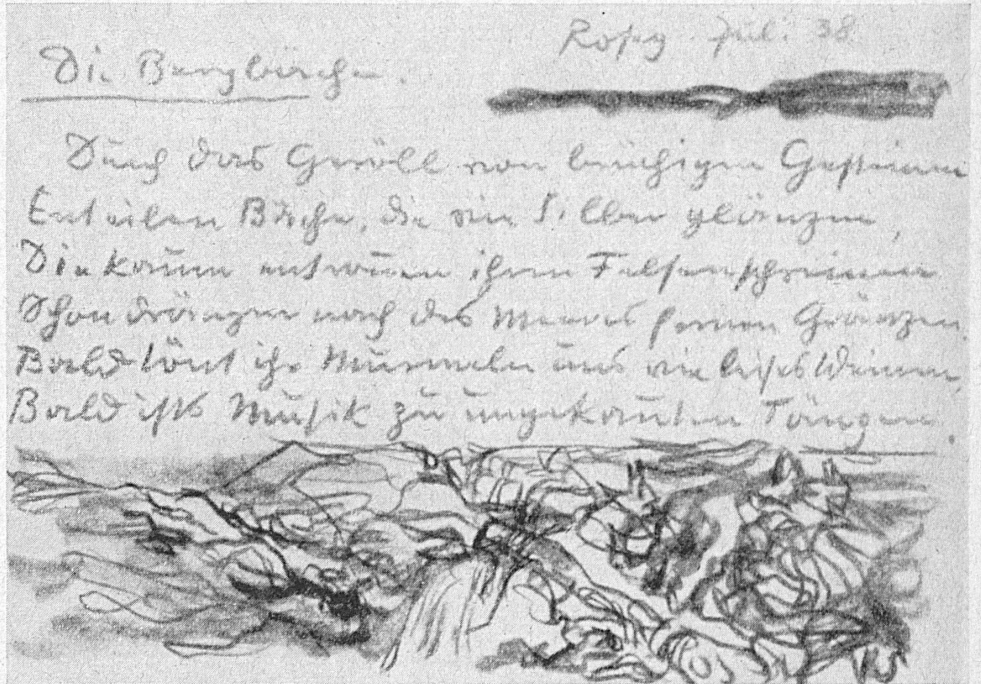 Roseg Jul. 38
Die Bergbäche.
Durch das Geröll von brüchigen Gesteinen
Enteilen Bäche, die wie Silber glänzen,
Die kaum entronnen ihren Felsenschreinen
Schon drängen nach des Meeres fernen Gränzen.
Bald tönt ihr Murmeln uns wie leises Weinen,
Bald ists Musik zu ungekannten Tänzen.